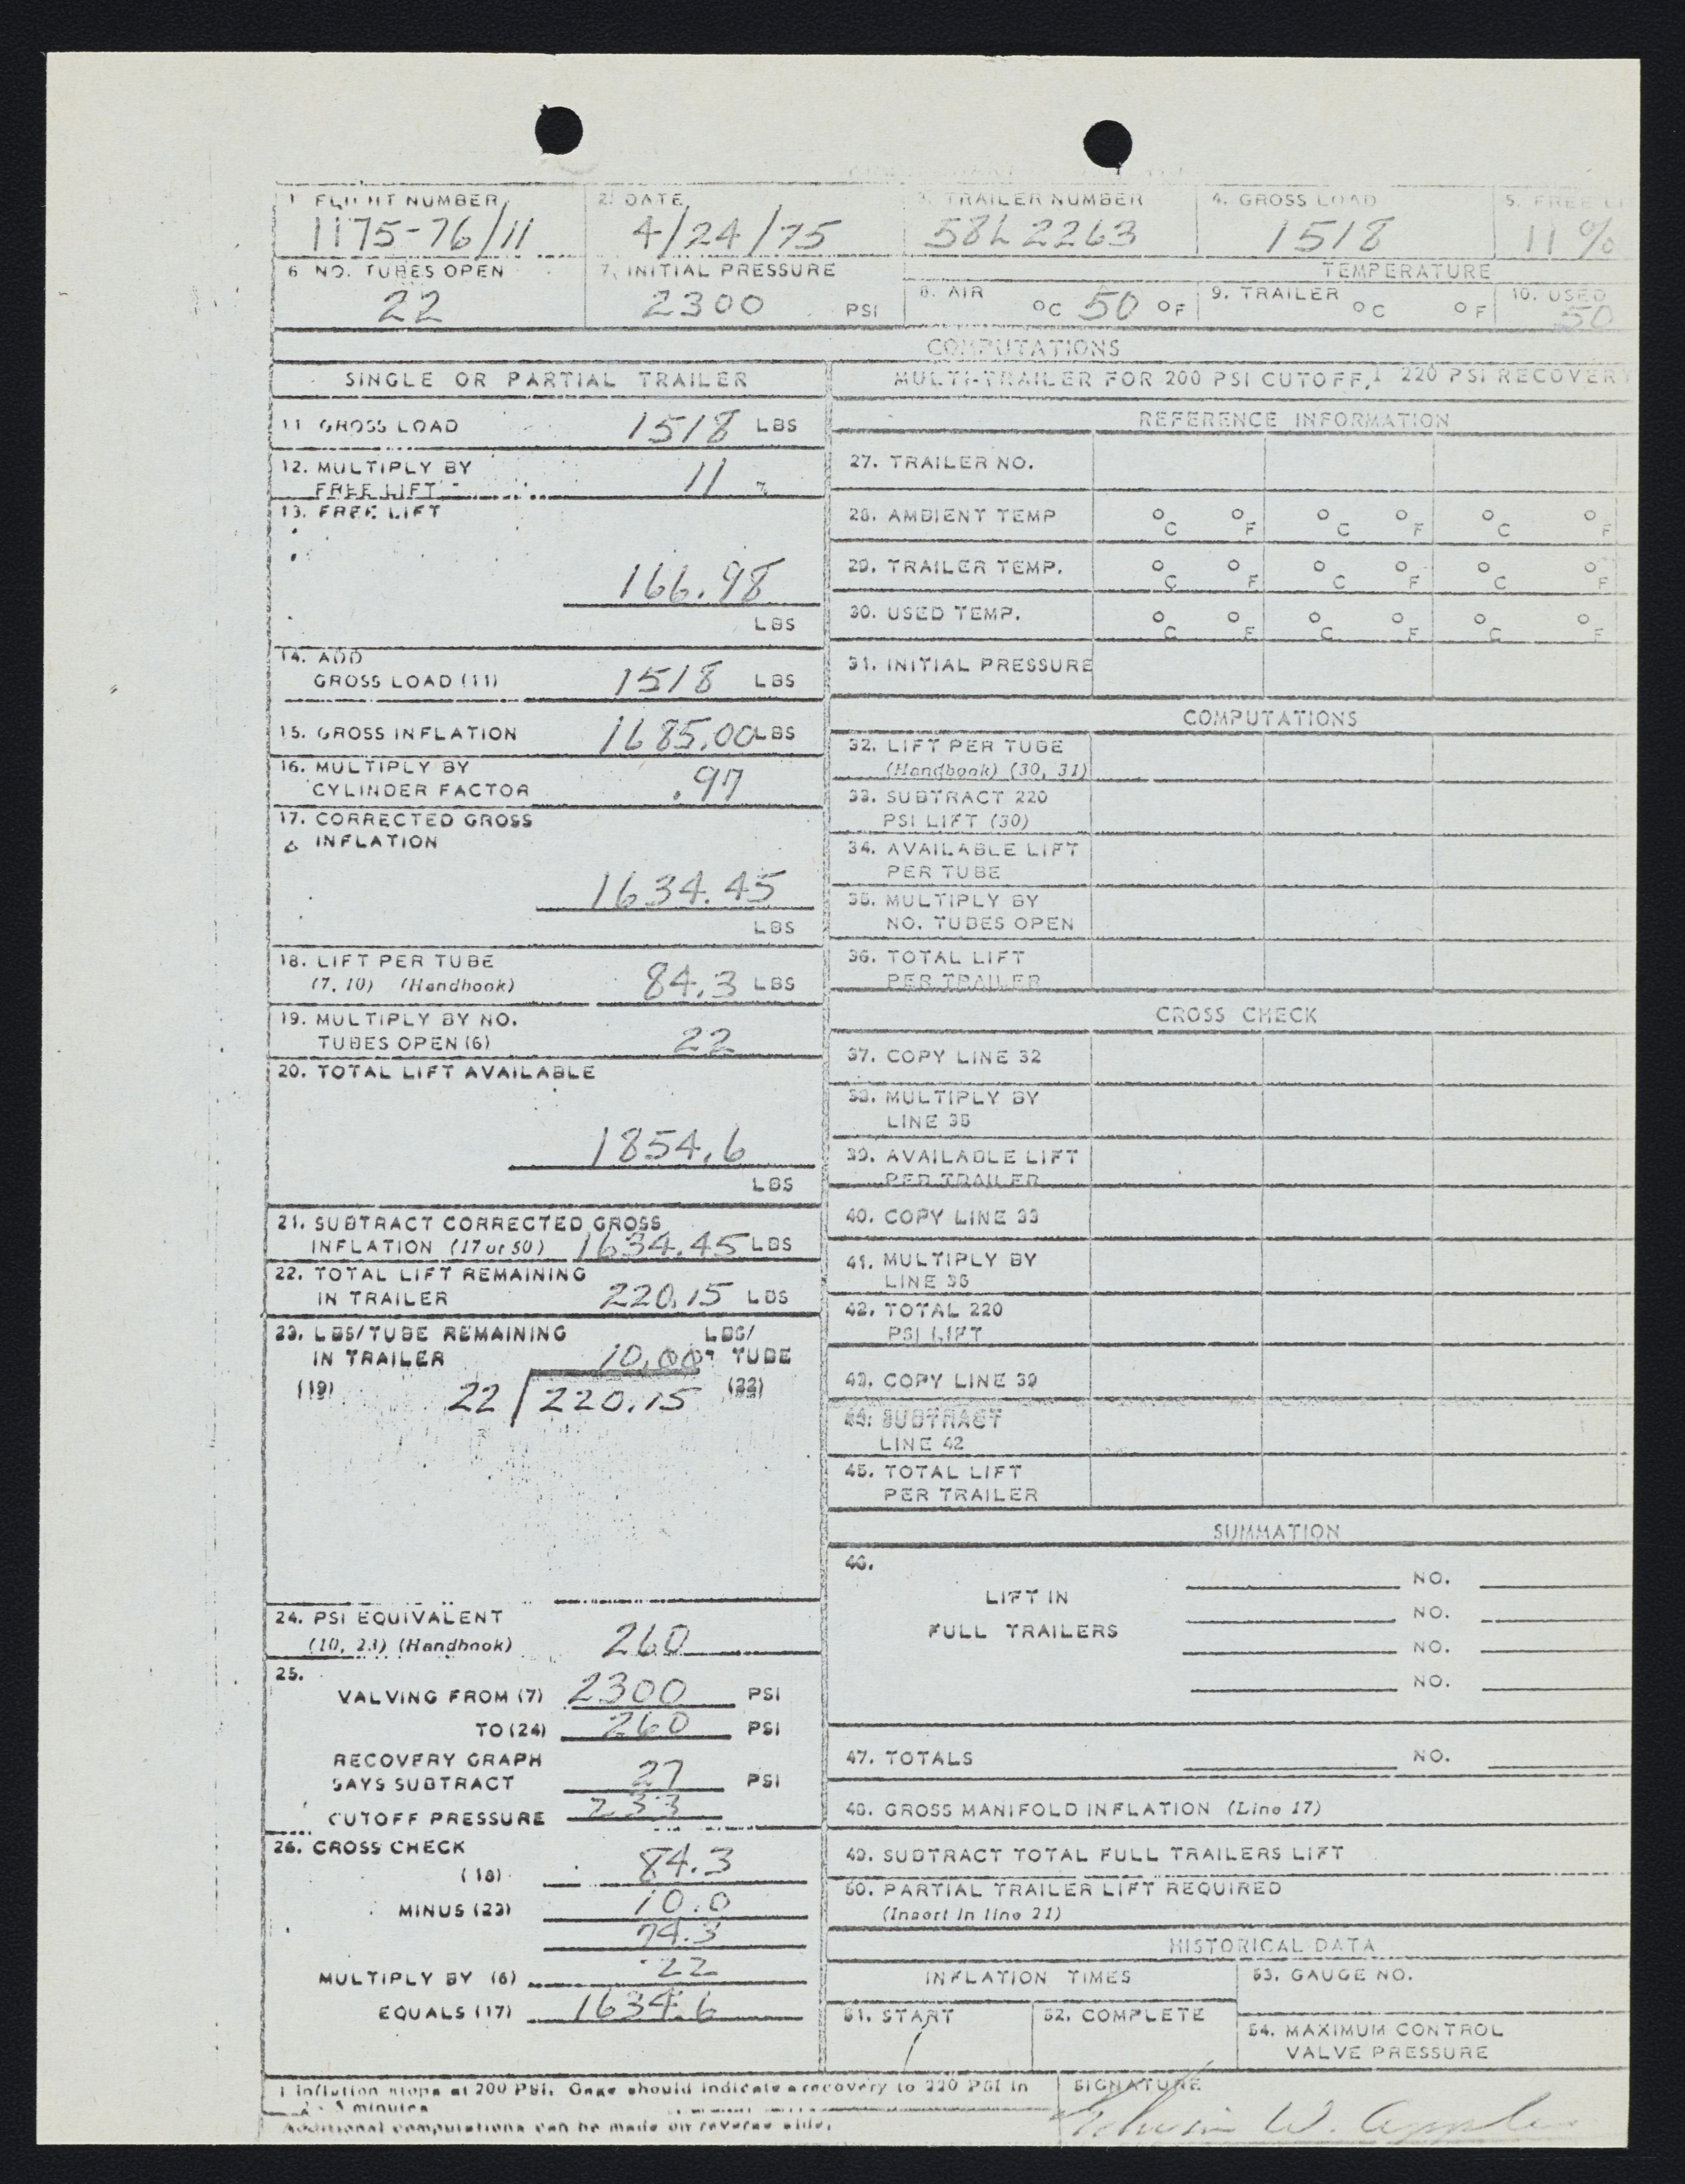 1 FLIGHT NUMBER 2. DATE 3. TRAILER NUMBER 4. GROSS LOAD 5. FREE LI
1175-76/11 4/24/75 58L2263 1518 11%
6 NO. TUBES OPEN 7. INITIAL PRESSURE TEMPERATURE
22 2300 PSI 8. AIR °C 50 °F 9. TRAILER °C °F 10. USED 50
COMPUTATIONS
SINGLE OR PARTIAL TRAILER
11 GROSS LOAD 1518 LBS
12. MULTIPLY BY
FREE LIFT 11 %
13. FREE LIFT
166.98
LBS
14. ADD
GROSS LOAD (11) 1518 LBS
15. GROSS INFLATION 1685.00 LBS
16. MULTIPLY BY
CYLINDER FACTOR .97
17. CORRECTED GROSS
INFLATION
1634.45
LBS
18. LIFT PER TUBE
(7, 10) (Handbook) 84.3 LBS
19. MULTIPLY BY NO.
TUBES OPEN (6) 22
20. TOTAL LIFT AVAILABLE
1854.6
LBS
21. SUBTRACT CORRECTED GROSS
INFLATION (17 or 50) 1634.45 LBS
22. TOTAL LIFT REMAINING
IN TRAILER 220.15 LBS
23. LBS/TUBE REMAINING LBS/
IN TRAILER 10.007 TUBE
(19) 22 220.15 (22)
24. PSI EQUIVALENT
(10, 23) (Handbook) 260
25.
VALVING FROM (7) 2300 PSI
TO (24) 260 PSI
RECOVERY GRAPH
SAYS SUBTRACT 27 PSI
CUTOFF PRESSURE 233
26. CROSS CHECK
(18) 84.3
MINUS (23) 10.0
74.3
MULTIPLY BY (6) 22
EQUALS (17) 1634.6
MULTI-TRAILER FOR 200 PSI CUTOFF,1 220 PSI RECOVERY
REFERENCE INFORMATION
27. TRAILER NO.
28. AMBIENT TEMP °C °F °C °F °C °F
29. TRAILER TEMP. °C °F °C °F °C °F
30. USED TEMP. °C °F °C °F °C °F
31. INITIAL PRESSURE
COMPUTATIONS
32. LIFT PER TUBE
(Handbook) (30, 31)
33. SUBTRACT 220
PSI LIFT (30)
34. AVAILABLE LIFT
PER TUBE
35. MULTIPLY BY
NO. TUBES OPEN
36. TOTAL LIFT
PER TRAILER
CROSS CHECK
37. COPY LINE 32
38. MULTIPLY BY
LINE 35
39. AVAILABLE LIFT
PER TRAILER
40. COPY LINE 33
41. MULTIPLY BY
LINE 35
42. TOTAL 220
PSI LIFT
43. COPY LINE 39
44. SUBTRACT
LINE 42
45. TOTAL LIFT
PER TRAILER
SUMMATION
46.
NO.
LIFT IN
NO.
FULL TRAILERS
NO.
NO.
47. TOTALS NO.
48. GROSS MANIFOLD INFLATION (Line 17)
49. SUBTRACT TOTAL FULL TRAILERS LIFT
50. PARTIAL TRAILER LIFT REQUIRED
(Insert in line 21)
HISTORICAL DATA
INFLATION TIMES 53. GAUGE NO.
51. START 52. COMPLETE
54. MAXIMUM CONTROL
VALVE PRESSURE
1 Inflation stops at 200 PSI. Gage should indicate a recovery to 220 PSI in
2 - 3 minutes
Additional computations can be made on reverse side.
SIGNATURE
W.